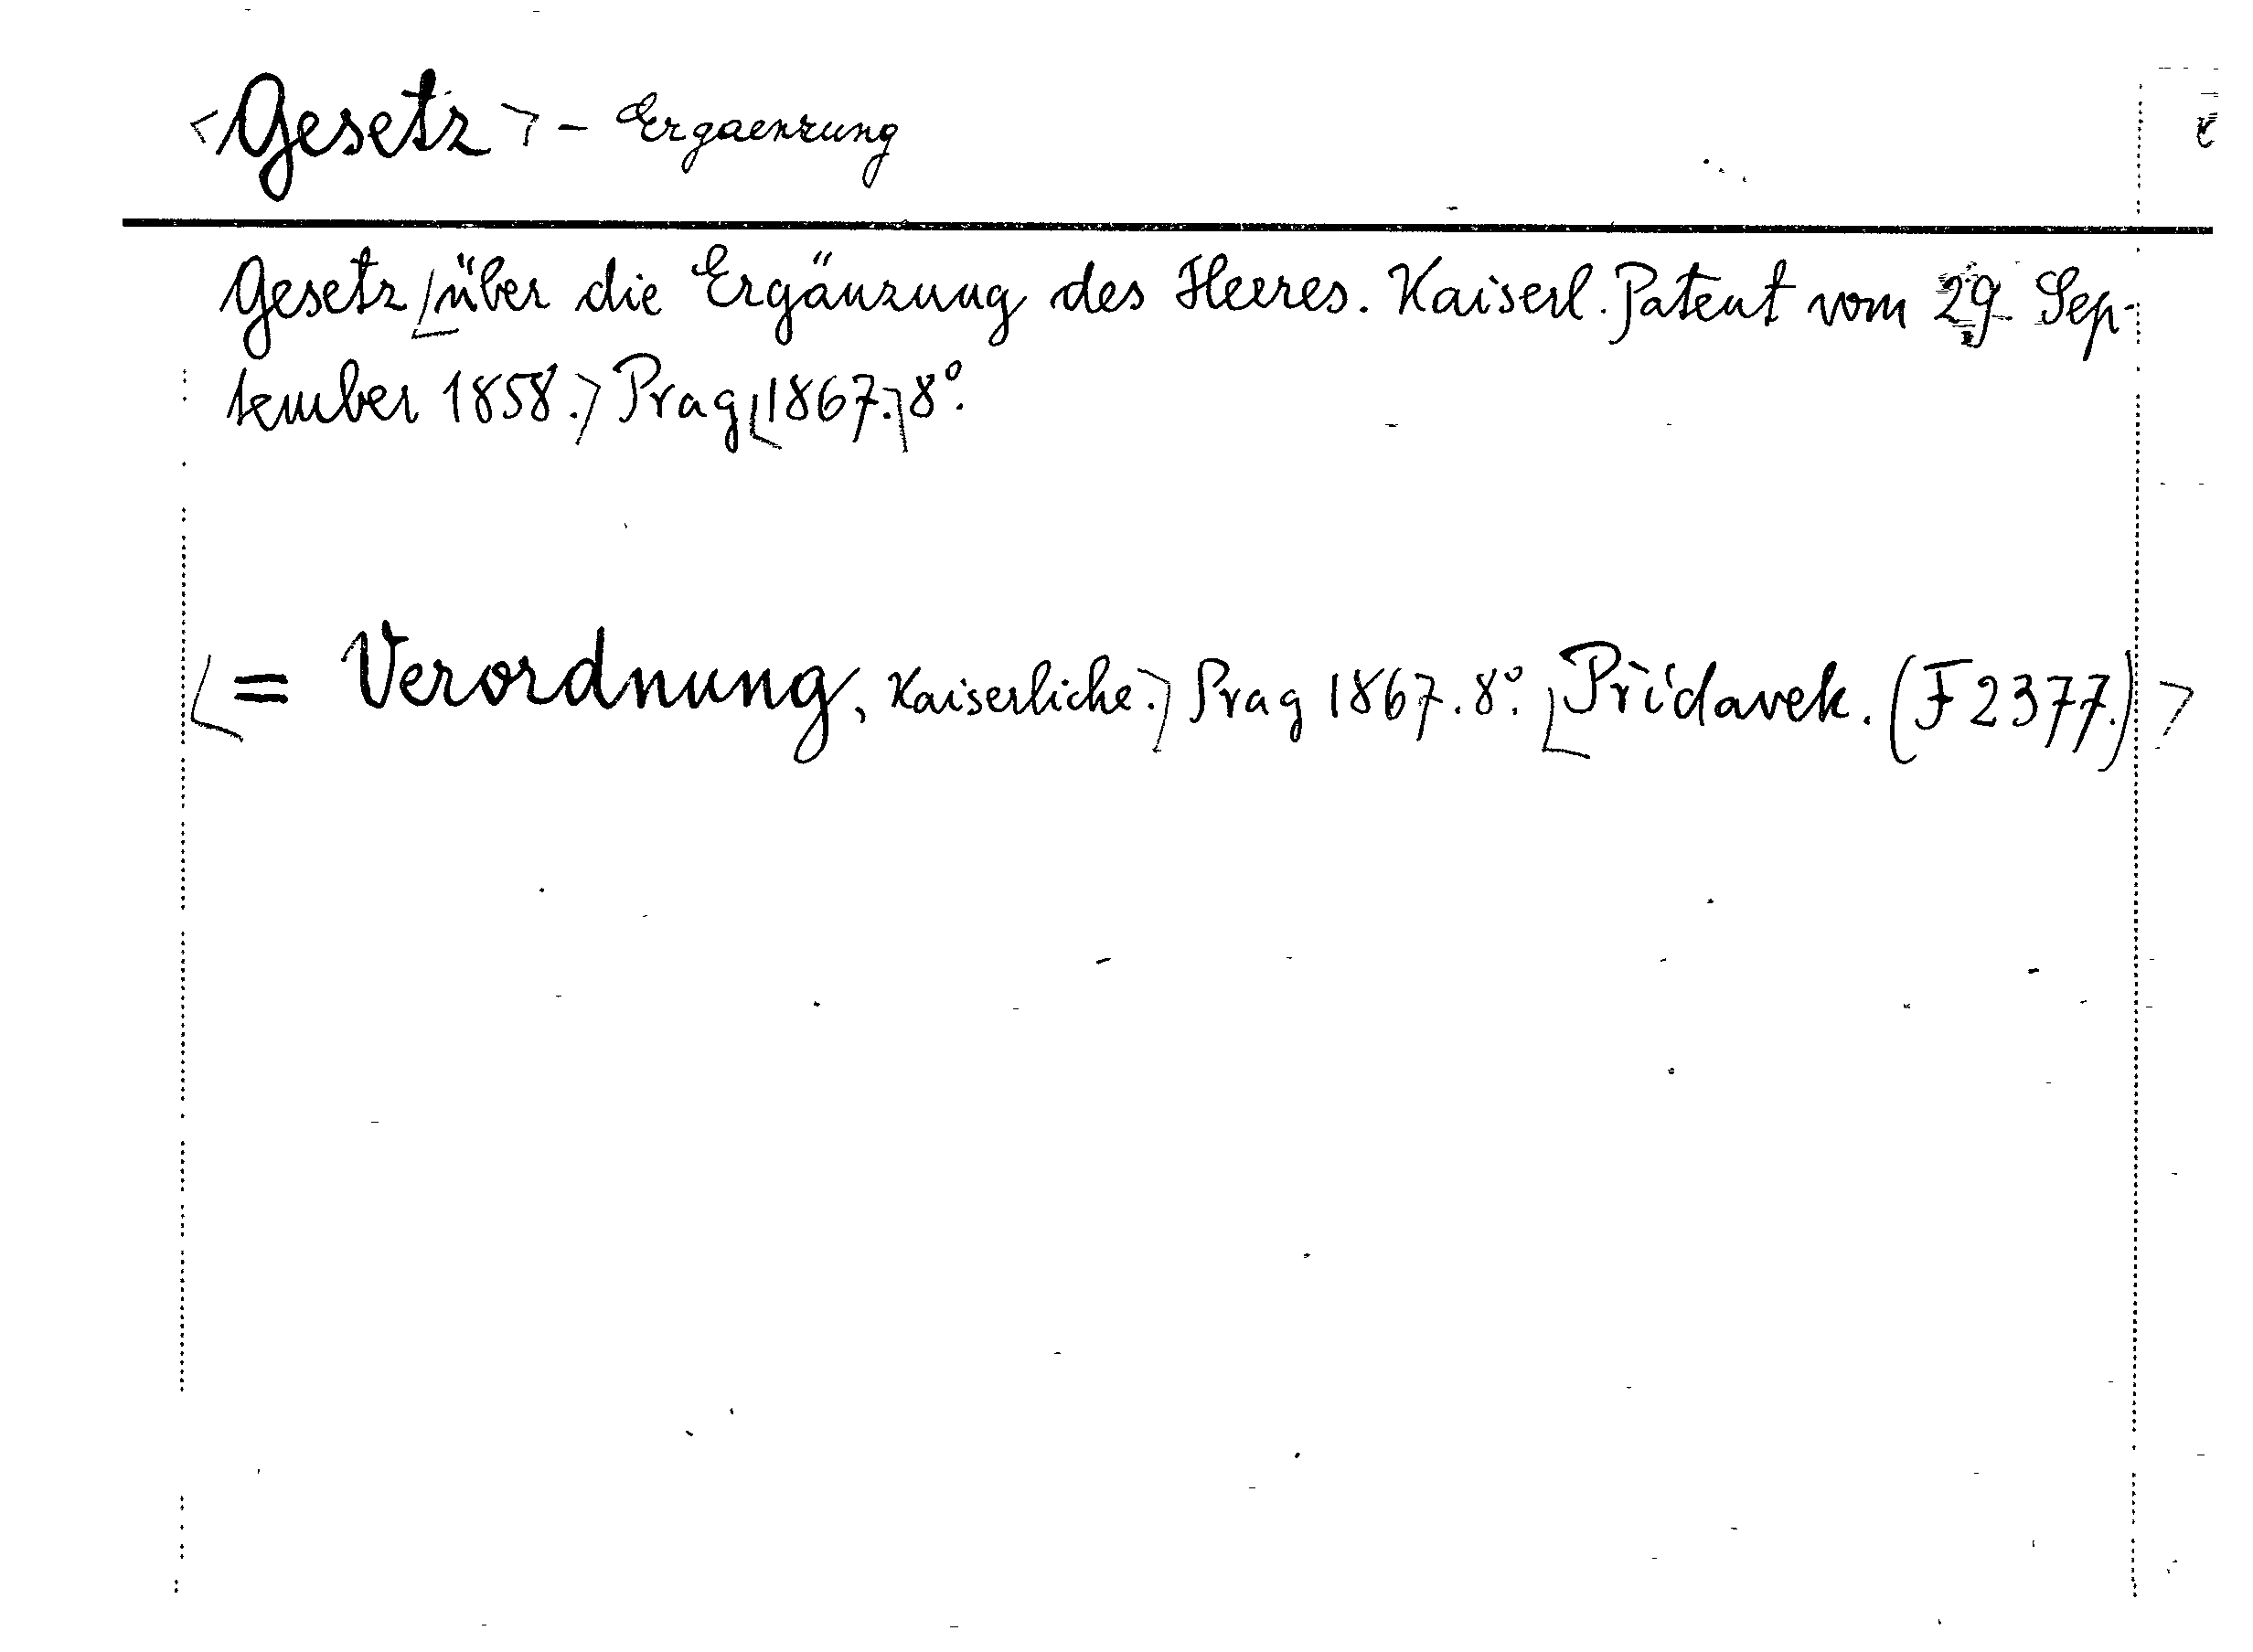 <Gesetz> - Ergaenzung
Gesetz [über die Ergänzung des Heeres. Kaiserl. Patent vom 29. Sep-
tember 1858.] Prag [1867.] 8°.
[= Verordnung, Kaiserliche.] Prag 1867. 8°. [Přídavek. (F 2377.)]